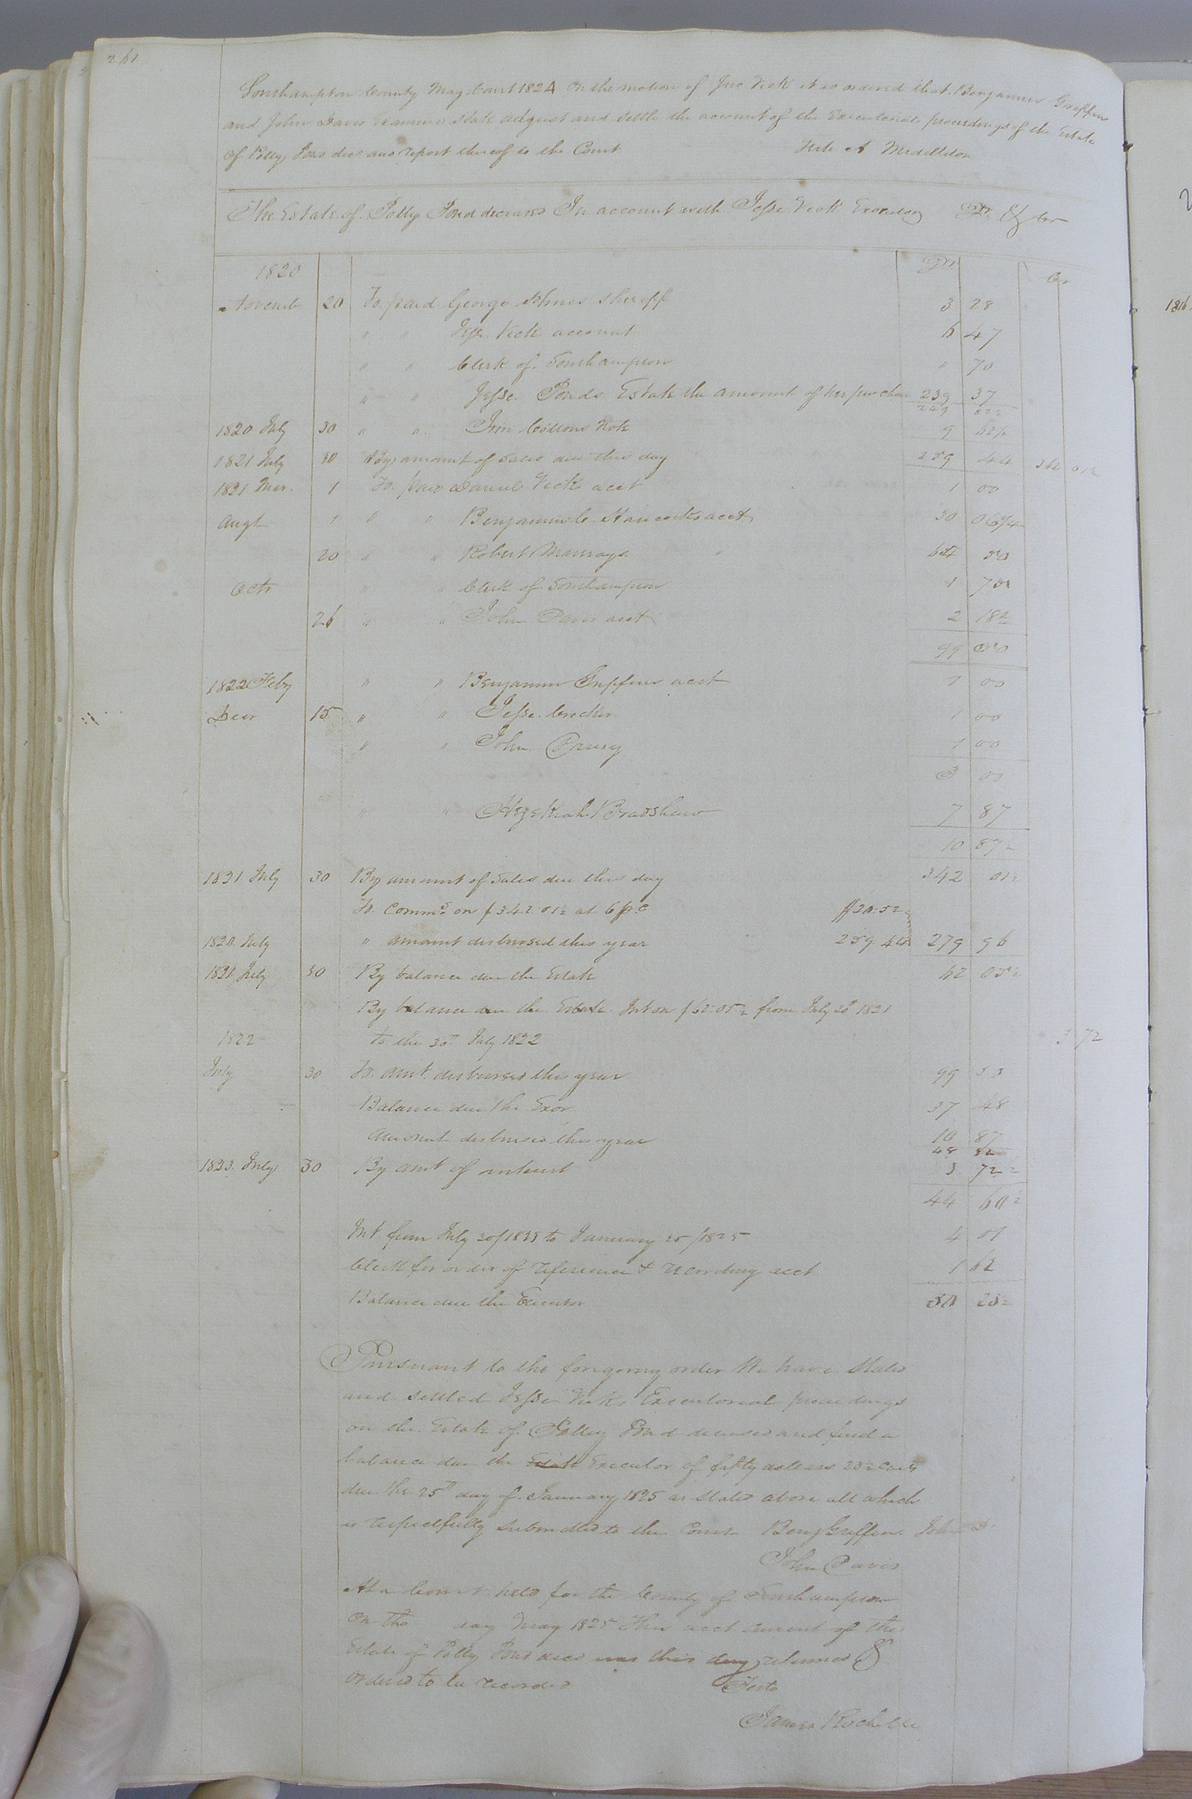 261
Southampton County May Court 1824 On the motion of Jno Vick it is ordered that Benjamin Griffin
and John Davis Examine state adjust and settle the account of the Executorial proceedings of the Estate
of Polly Pond decd and report thereof to the Court Teste A Middleton
The Estate of Polly Pond deceased In account with Jesse Vick Executor Dr &
1820 Dr Cr
Novemb 20 To paid George sheriff 3 28
" " Jesse Vick account 6 47
" " Clerk of Southampton " 70
" " Jesse Ponds Estate the amount of her purchase 239 37
1820 July 30 " " note 9
1821 July 30 By amount of sales due this day 259 44 342 01½
1821 Mar. 1 To paid Daniel Vick acct 1 00
Augt 1 " " Benjamin C acct 30 06¼
20 " " Robert Murrays 64
Octr " " Clerk of Southampton 1 70
26 " " John Davis acct 2 18½
99
1822 Feby " " Benjamin Griffins acct 1 00
Decr 15 " " Jesse 1 00
" " John Drury 1 00
3 00
" " Hezekiah Bradshaw 7 87
10 87
1821 July 30 By amount of sales due this day 342 01½
To Commn on $342.01½ at 6 pr c $20.52
1820 July " amount disbursed this year 259 44 279 96
1821 July 30 By balance due the Estate 62 05½
By balance due the Estate Int on $62.05½ from July 30 1821
1822 to the 30th July 1822 3 72
July 30 To amt. disbursed this year 99 53
Balance due the Exor 37 48
Amount disbursed this year 10 87
48
1823 July 30 By amt of interest 3 72
44 60½
Int from July 30/1823 to January 25/1825 4 01
Clerk for order of reference & recording acct 1 62
Balance due the Executor 50 23½
Pursuant to the foregoing order We have stated
and settled Jesse Vicks Executorial proceedings
on the Estate of Polley Pond deceased and find a
balance due the Estate Executor of fifty dollars 23½ Cents
due the 25th day of January 1825 as stated above all which
is respectfully submitted to the Court Benj Griffin
John Davis
At a Court held for the County of Southampton
On the day May 1825 This acct current of the
Estate of Polly Pond decd was this day returned &
ordered to be recorded Teste
James Rochelle